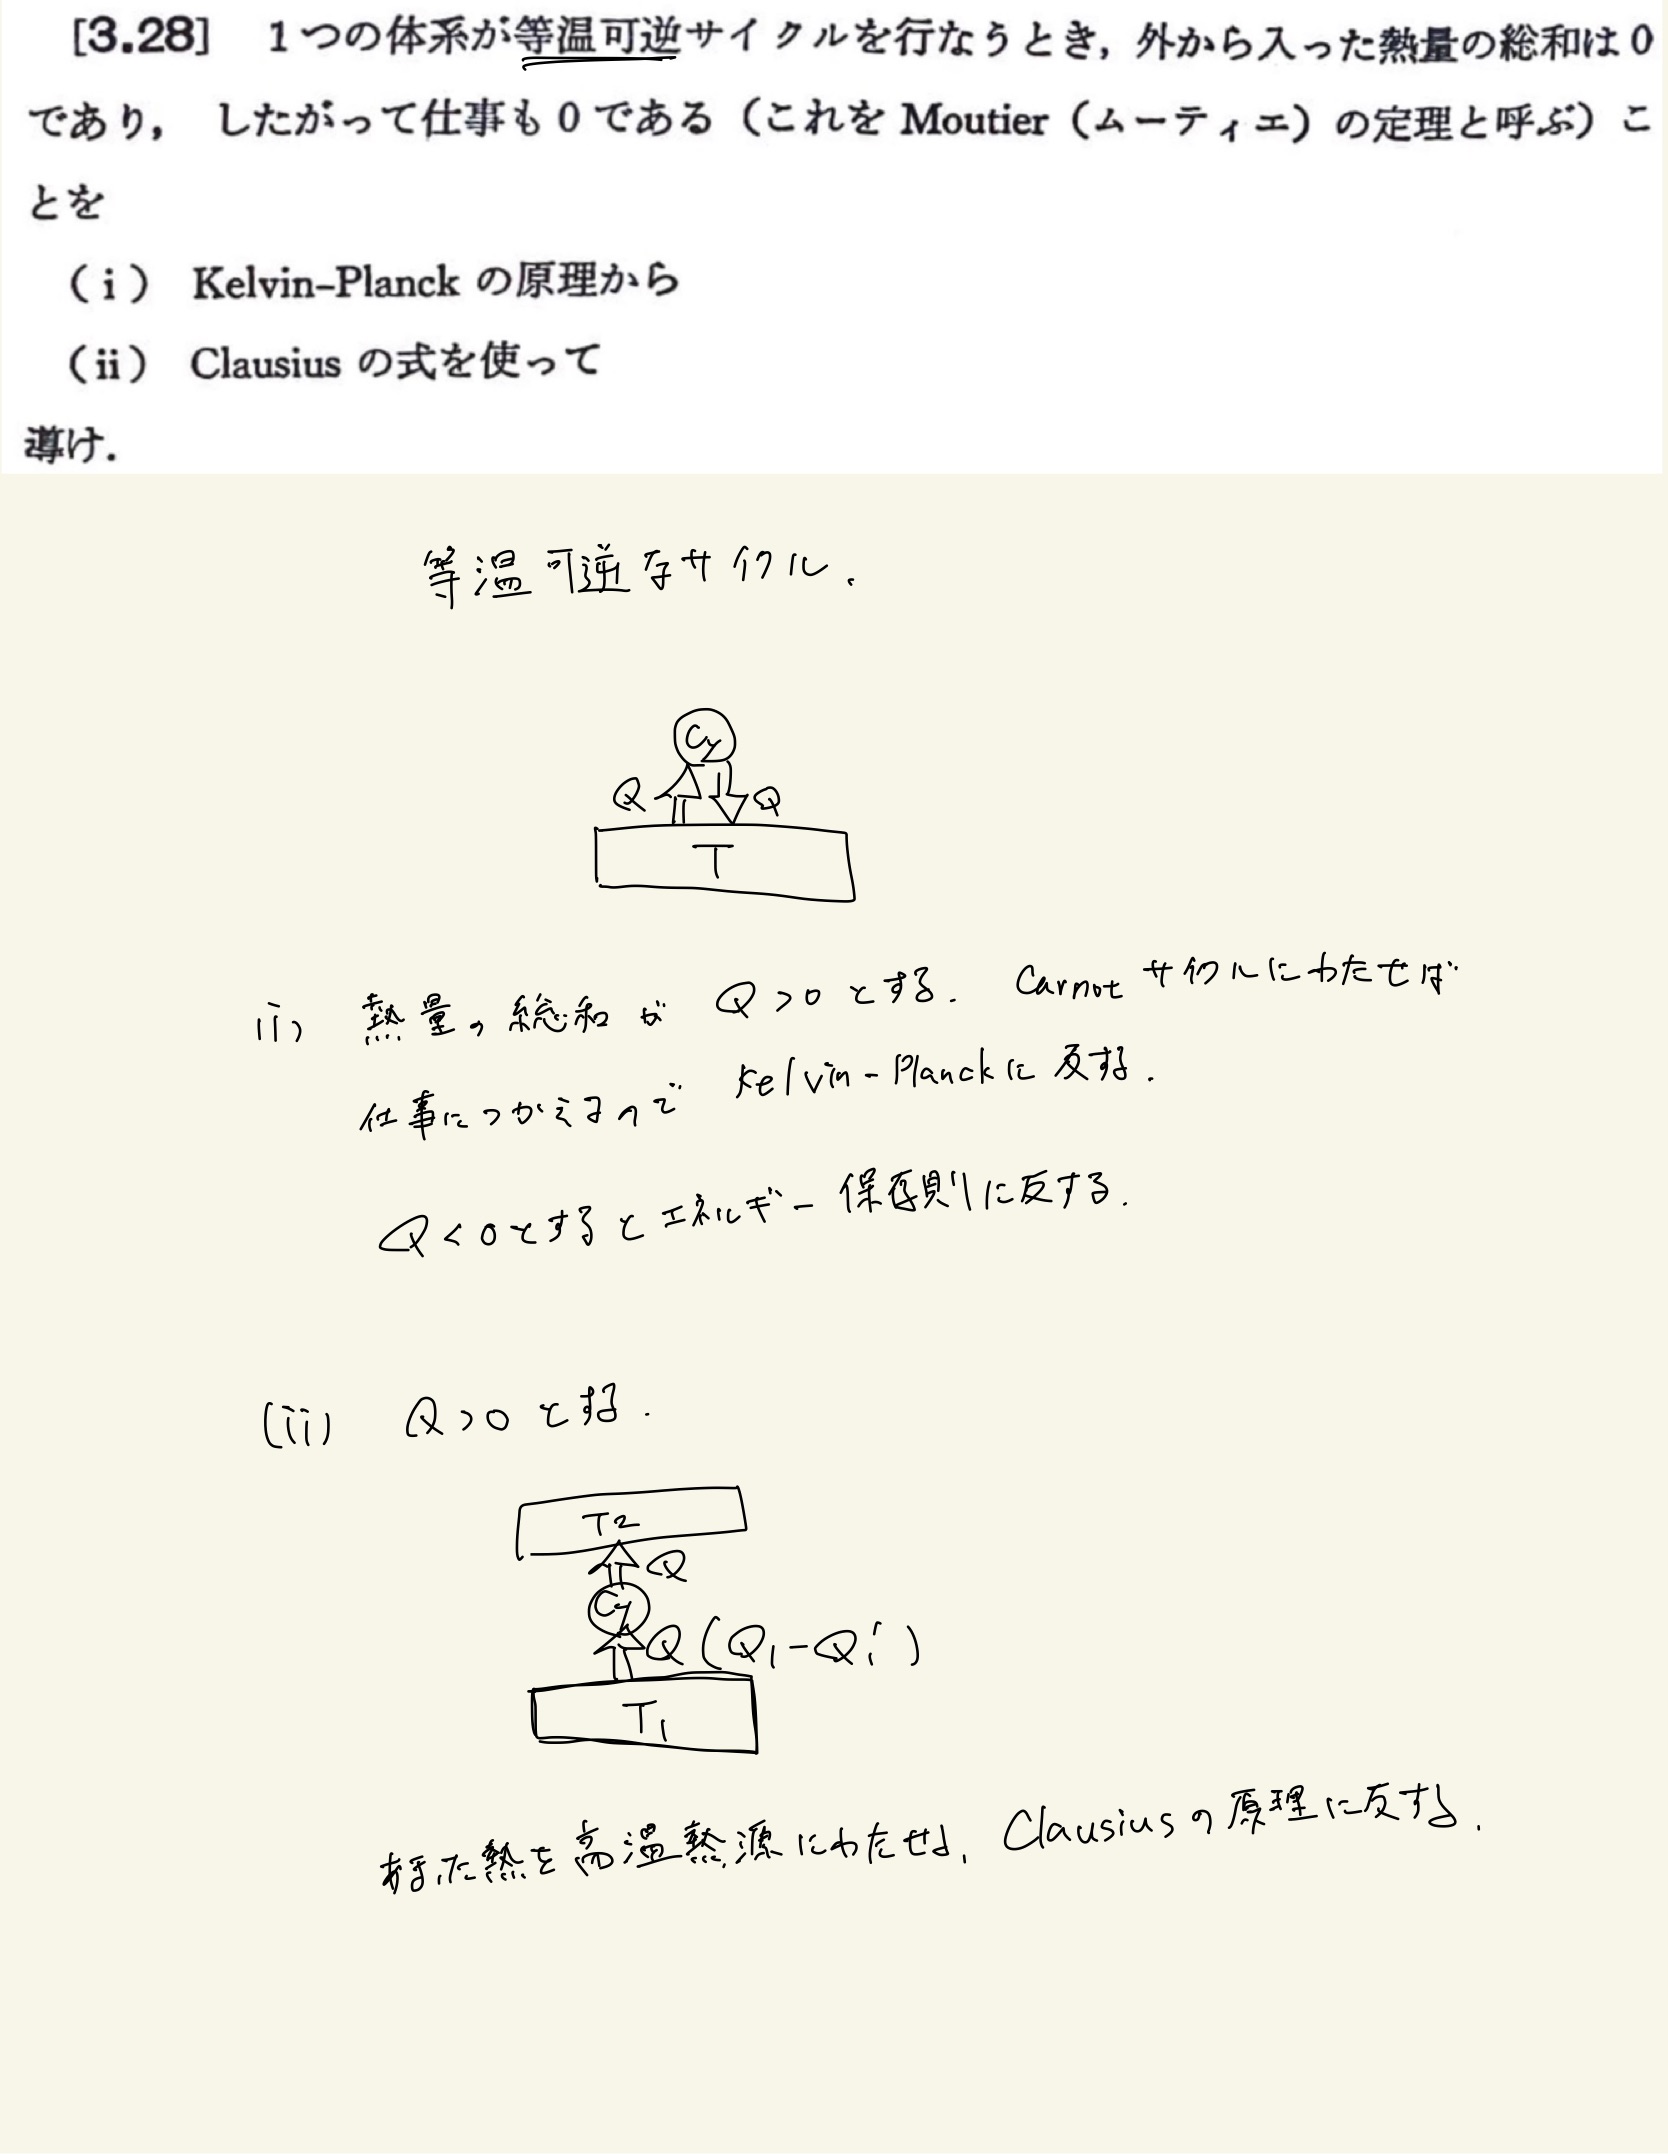 [3.28] 1つの体系が等温可逆サイクルを行なうとき，外から入った熱量の総和は0
であり， したがって仕事も0である（これを Moutier（ムーティエ）の定理と呼ぶ）こ
とを
（i） Kelvin–Planck の原理から
（ii） Clausius の式を使って
導け．
等温可逆なサイクル．
Cy
Q Q
T
i) 熱量の総和が Q>0 とする． Carnot サイクルにわたせば
仕事につかえるので Kelvin-Planckに反する．
Q<0とするとエネルギー保存則に反する．
(ii) Q>0 とする．
T2
Q
Cy
Q(Q1-Q1')
T1
あまった熱を高温熱源にわたせば, Clausiusの原理に反する．